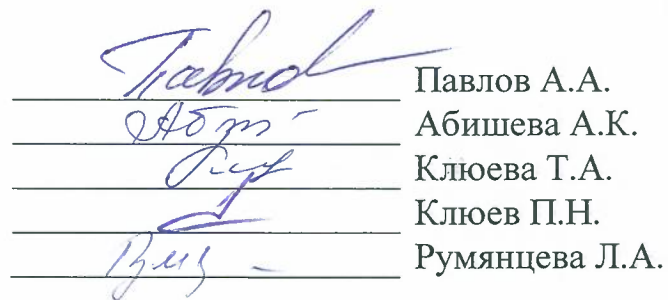 Павлов А.А.
Абишева А.К.
Клюева Т.А.
Клюев П.Н.
Румянцева Л.А.